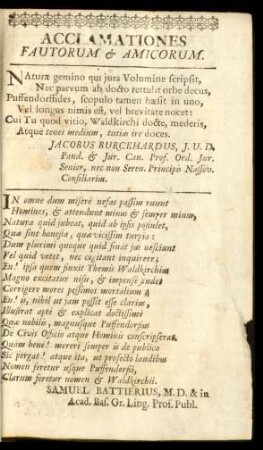 ACCLAMATIONES
FAUTORUM & AMICORUM.
Naturæ gemino qui jura Volumine scripsit,
Nec parvum ab docto rettulit orbe decus,
Puffendorffides, scopulo tamen hæsit in uno,
Vel longus nimis est, vel brevitate nocet:
Cui Tu quod vitio, Waldkirchi docte, mederis,
Atque tenes medium, tutiu ire doces.
JACOBUS BURCKHARDUS, J. U. D.
Pand. & Jur. Can. Prof. Ord. Jur.
Senior, nec non Seren. Principis Nassov.
Consiliarius.
IN omne dum miseré nefas passim ruunt
Homines, & attendunt minus & semper minus,
Natura quid jubeat, quid ab ipsis postulet,
Quæ sint honesta, quæ vicissim turpia:
Dum plurimi quoque quid sivat jus nesciunt
Vel quid vetet, nec cogitant inquirere;
En! ipsa quem finxit Themis Waldkirchius
Magno excitatur nisu, & impense
Corrigere mores possimos mortalium;
En! is, nihil ut jam possit esse clarius,
Illustrat apté & explicat doctissimé
Quæ nobilis, magnusque Puffendorfius
De Civis Officio atque Hominis conscripserat.
Quim bené! mereri semper is de publico
Sic pergat! atque ita, ut profecto laudibus
Nomen feretur usque Puffendorfii,
Clarum feretur nomen & Waldkirchii.
SAMUEL BATTIERIUS, M.D. & in
Acad. Bas. Gr. Ling. Prof. Publ.